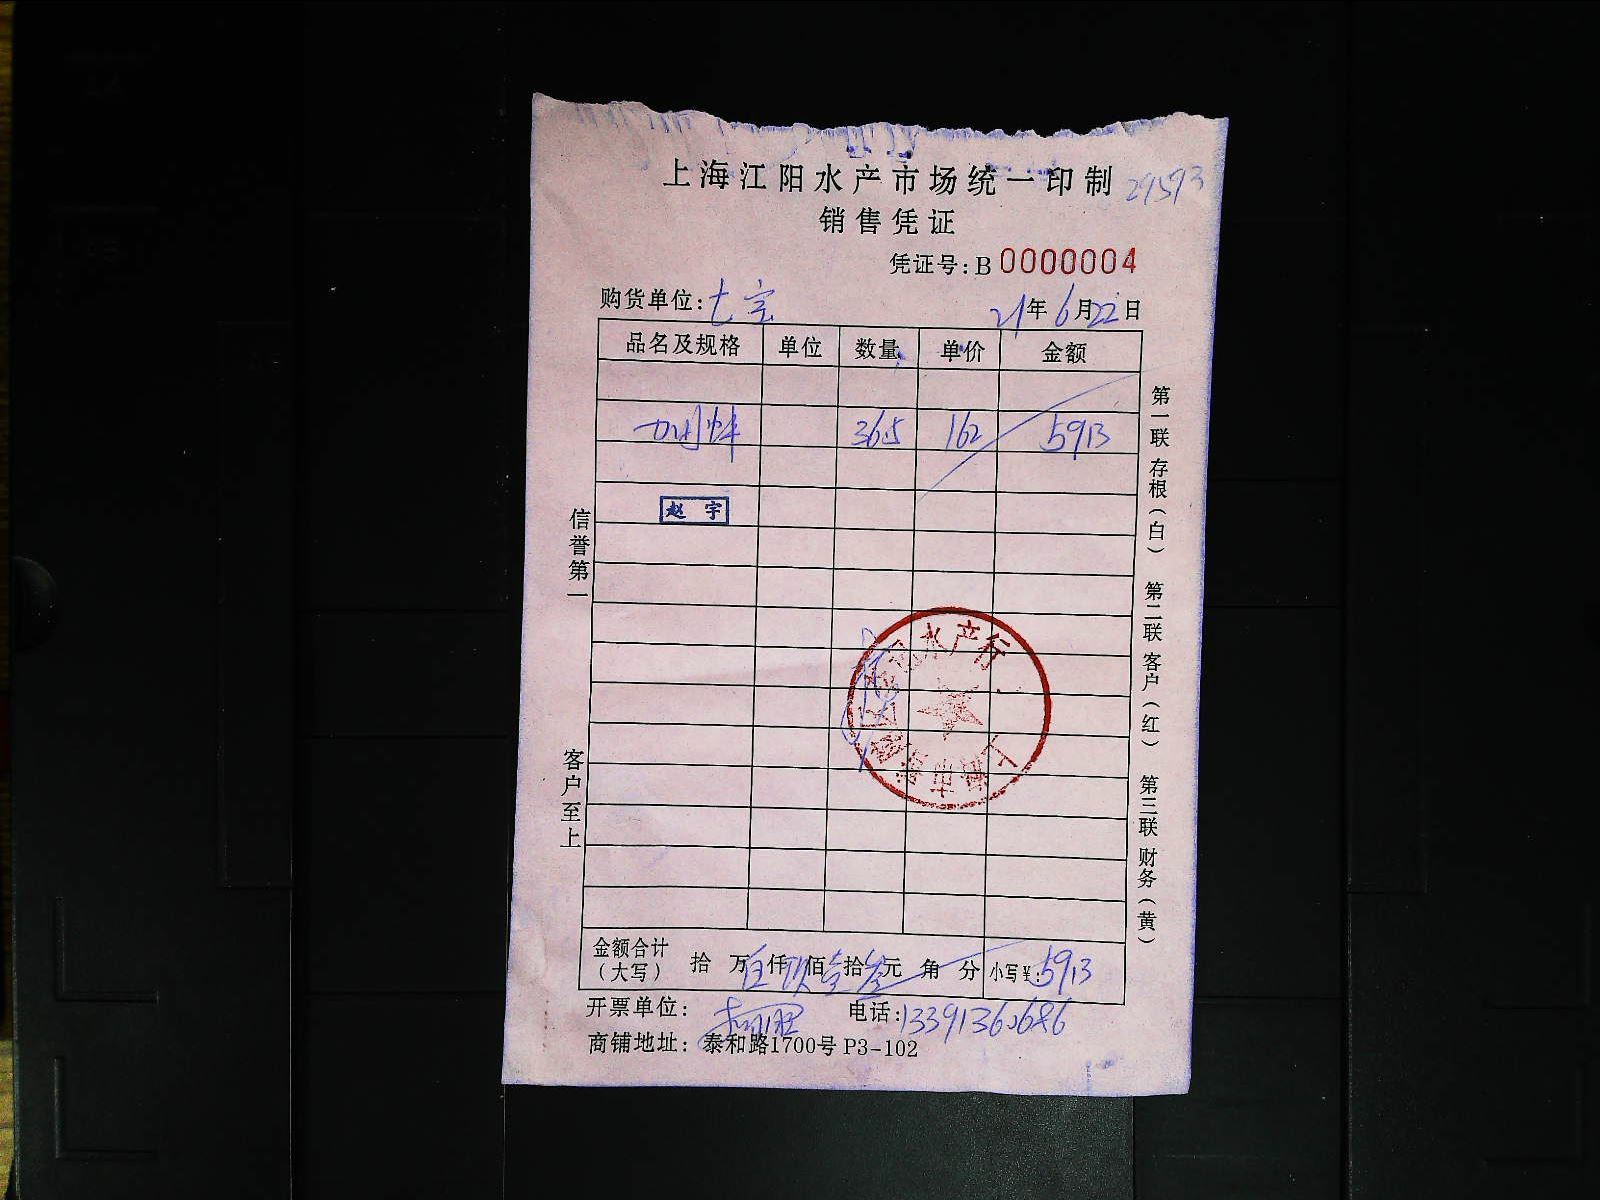 上海江阳水产市场统一印制 29593
销售凭证
凭证号:B 0000004
购货单位:七宝 21年6月22日
品名及规格 单位 数量 单价 金额
36.5 162 5913
赵宇
信誉第一
客户至上
第一联存根(白) 第二联客户(红) 第三联财务(黄)
水产行
上海市
金额合计(大写) 拾 万 伍 仟 玖 佰 壹 拾 叁 元 角 分 小写¥:5913
开票单位: 电话:13391360686
商铺地址: 泰和路1700号 P3-102